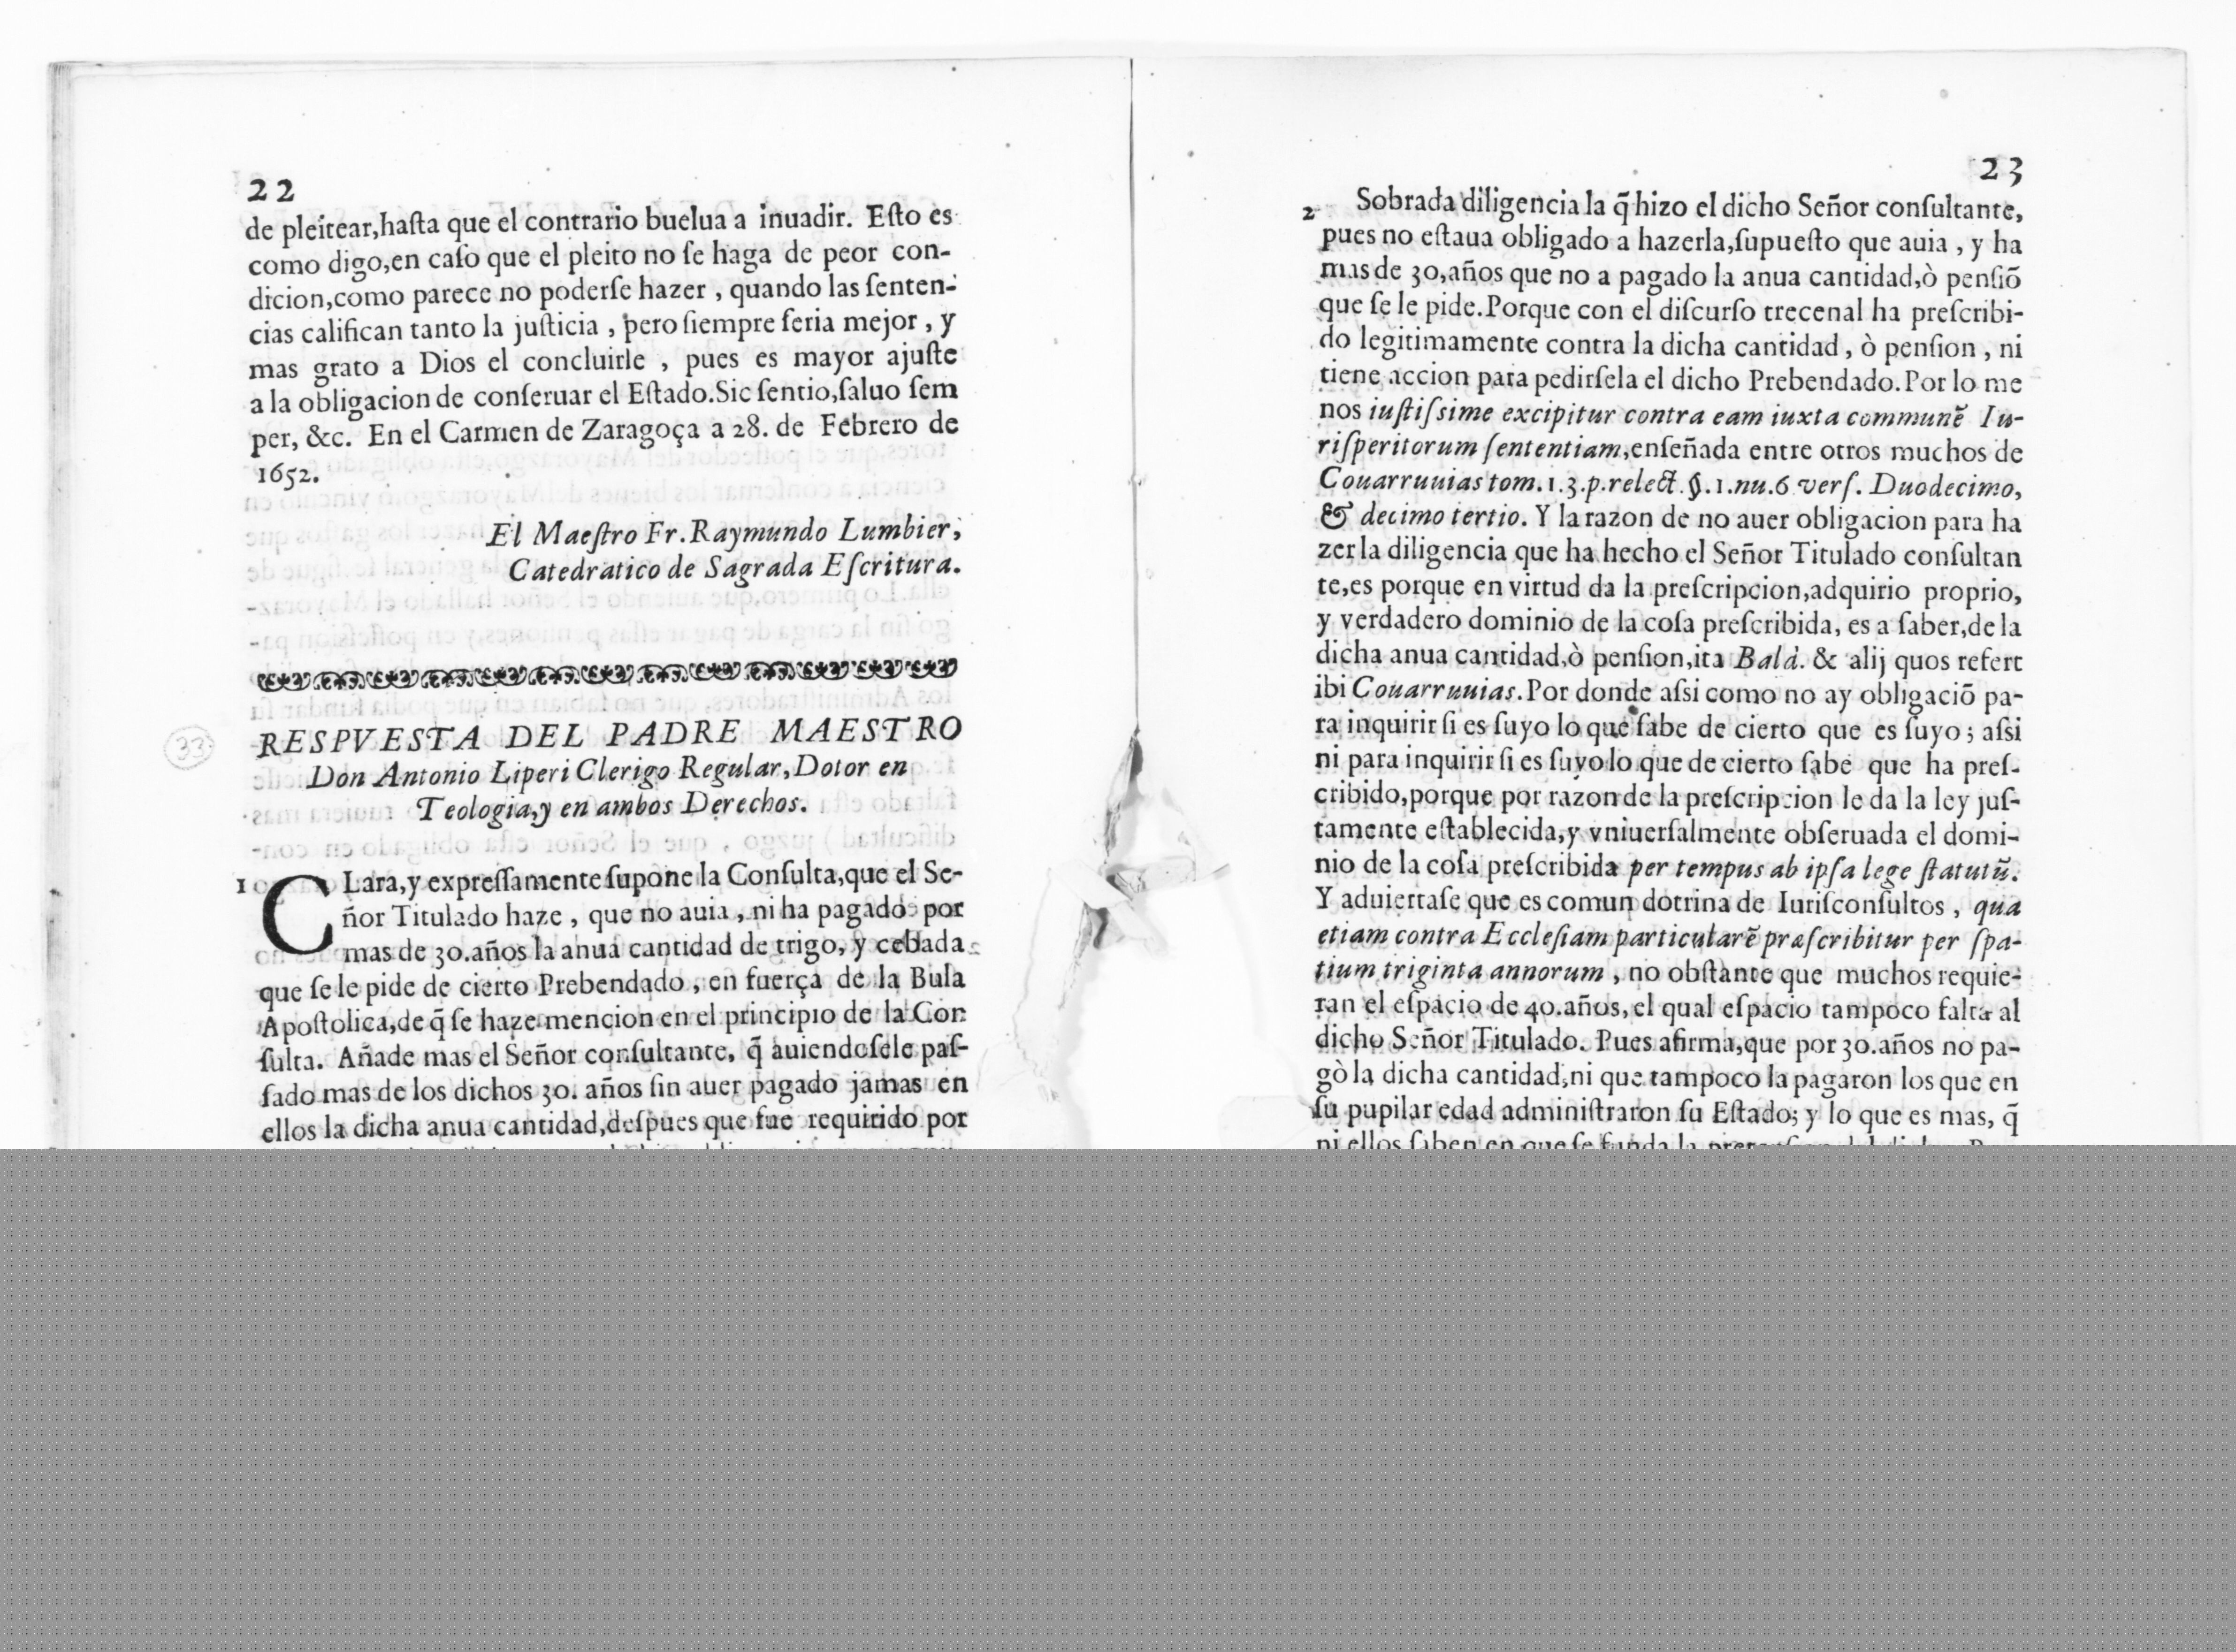 22
de pleitear,hasta que el contrario buelua a inuadir. Esto es
como digo,en caso que el pleito no se haga de peor con-
dicion,como parece no poderse hazer , quando las senten-
cias califican tanto la justicia , pero siempre seria mejor , y
mas grato a Dios el concluirle , pues es mayor ajuste
a la obligacion de conseruar el Estado.Sic sentio,saluo sem
per, &c. En el Carmen de Zaragoça a 28. de Febrero de
1652.
El Maestro Fr.Raymundo Lumbier,
Catedratico de Sagrada Escritura.
RESPVESTA DEL PADRE MAESTRO
Don Antonio Liperi Clerigo Regular,Dotor en
Teologia,y en ambos Derechos.
1 CLara,y expressamente supone la Consulta,que el Se-
ñor Titulado haze , que no auia , ni ha pagado por
mas de 30.años la anua cantidad de trigo, y cebada
que se le pide de cierto Prebendado , en fuerça de la Bula
Apostolica,de q̃ se haze mencion en el principio de la Con
sulta. Añade mas el Señor consultante, q̃ auiendosele pas-
sado mas de los dichos 30. años sin auer pagado jamas en
ellos la dicha anua cantidad,despues que fue requirido por
33
23
2 Sobrada diligencia la q̃ hizo el dicho Señor consultante,
pues no estaua obligado a hazerla,supuesto que auia , y ha
mas de 30,años que no a pagado la anua cantidad,ò pensiõ
que se le pide.Porque con el discurso trecenal ha prescribi-
do legitimamente contra la dicha cantidad , ò pension , ni
tiene accion para pedirsela el dicho Prebendado.Por lo me
nos iustissime excipitur contra eam iuxta communẽ Iu-
risperitorum sententiam,enseñada entre otros muchos de
Couarruuias tom.1.3.p.relect.§.1.nu.6 vers. Duodecimo,
& decimo tertio. Y la razon de no auer obligacion para ha
zer la diligencia que ha hecho el Señor Titulado consultan
te,es porque en virtud da la prescripcion,adquirio proprio,
y verdadero dominio de la cosa prescribida, es a saber,de la
dicha anua cantidad,ò pension,ita Balà. & alij quos refert
ibi Couarruuias.Por donde assi como no ay obligaciõ pa-
ra inquirir si es suyo lo que sabe de cierto que es suyo ; assi
ni para inquirir si es suyo lo que de cierto sabe que ha pres-
cribido,porque por razon de la prescripcion le da la ley jus-
tamente establecida,y vniuersalmente obseruada el domi-
nio de la cosa prescribida per tempus ab ipsa lege statutũ.
Y aduiertase que es comun dotrina de Iurisconsultos , qua
etiam contra Ecclesiam particularẽ præscribitur per spa-
tium triginta annorum , no obstante que muchos requie-
ran el espacio de 40.años, el qual espacio tampoco falta al
dicho Señor Titulado. Pues afirma,que por 30.años no pa-
gò la dicha cantidad,ni que tampoco la pagaron los que en
su pupilar edad administraron su Estado; y lo que es mas, q̃
ni ellos saben en que se funda la